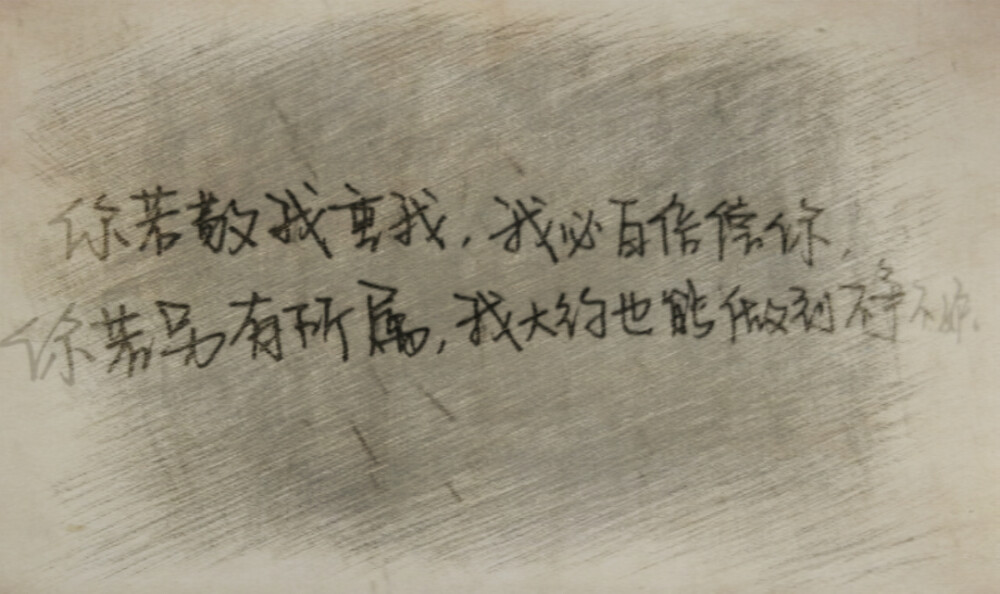 你若敬我重我，我必百倍偿你，
你若另有所属，我大约也能做到不争不妒.